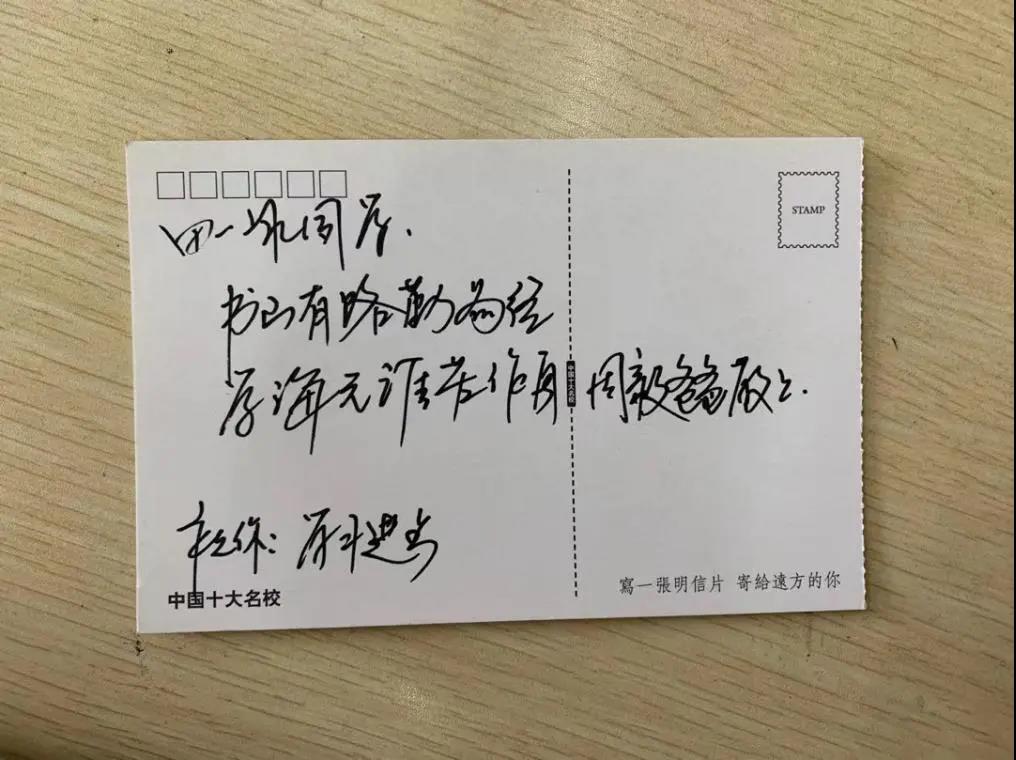 同学.
书山有路勤为径
学海无涯苦作舟
周毅爸爸敬上.
祝你：学习进步
中国十大名校
STAMP
中国十大名校
寫一張明信片 寄給遠方的你